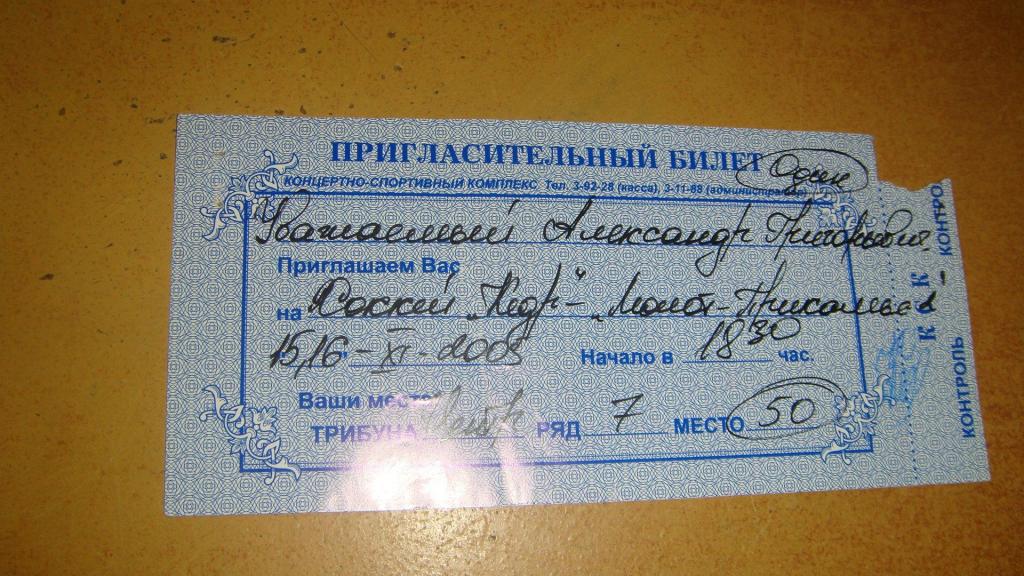 ПРИГЛАСИТЕЛЬНЫЙ БИЛЕТ Один
КОНЦЕРТНО-СПОРТИВНЫЙ КОМПЛЕКС Тел. 3-92-28 (касса), 3-11-88 (администратор)
Уважаемый Александр Григорьевич
Приглашаем Вас
на Хоккей "Кедр" - "Молот-Прикамье"
15,16 - XI - 2003 Начало в 18 30 час.
Ваши места:
ТРИБУНА Центр РЯД 7 МЕСТО 50
КСК
КОНТРОЛЬ - КОНТРО